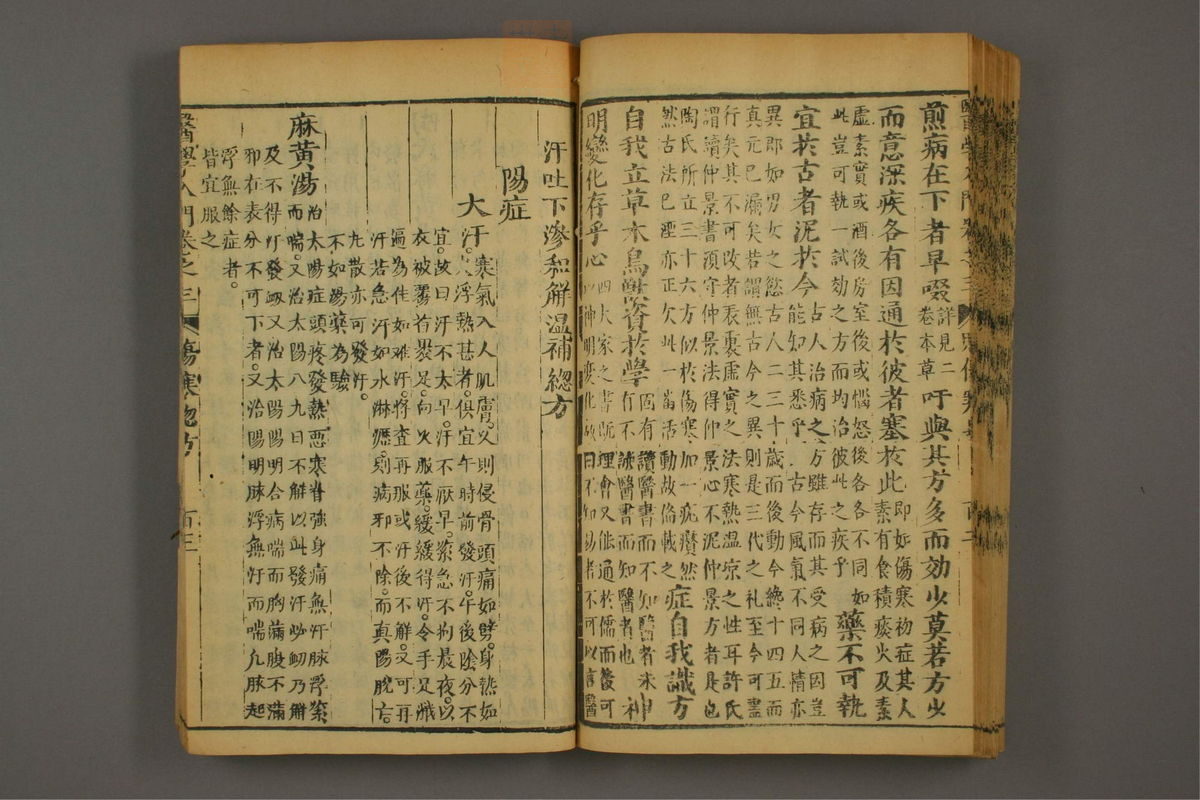 煎病在下者早啜詳見二卷本草吁與其方多而効少莫若方少
而意深疾各有因通於彼者塞於此即如傷寒初症其人素有食積痰火及素
虛素實或酒後房室後或惱怒後各各不同如此豈可執一試効之方而均治彼此之疾乎藥不可執
宜於古者泥於今古人治病之方雖存而其受病之因豈能知其悉乎古今風氣不同人情亦
異郡如男女之慾古人二三十歲而後動今纔十四五而真元已漏矣若謂無古今之異則是三代之礼至今可盡
行矣其不可改者表裏虛實之法寒熱溫凉之性耳許氏謂讀仲景書須守仲景法得仲景心不泥仲景方者是也
陶氏所立三十六方似於傷寒加一疣癭然然古法已湮亦正欠此一畨活動故俻載之症自我識方
自我立草木鳥獸資於學固有讀醫書而不知醫者未有不讀醫書而知醫者也神
明變化存乎心四大家之書既理會又能通於儒而後可以神明變化故曰不知易者不可以言醫
汗吐下滲和解溫補總方
陽症
大汗寒氣入人肌膚又則侵骨頭痛如劈身熱如
火浮熱甚者俱宜午時前發汗午後陰分不
宜故曰汗不太早汗不厭早緊急不拘晨夜以
衣被覆着嚴足向火服藥緩緩得汗令手足濈
遍為佳如难汗將查再服或汗後不解又可再
汗若急汗如水淋瀝則病邪不除而真陽脫亡
九散亦可發汗
不如湯藥為驗
麻黃湯治太陽症頭疼發熱惡寒脊強身痛無汗脉浮緊
而喘又治太陽八九日不解以此發汗必衂乃解
及不得汗發衂又治太陽陽明合病喘而胸滿腹不滿
邪在表分不可下者又治陽明脉浮無汗而喘凢脉起
浮無餘症者
皆宜服之
醫學入門卷之三 傷寒總方 百三